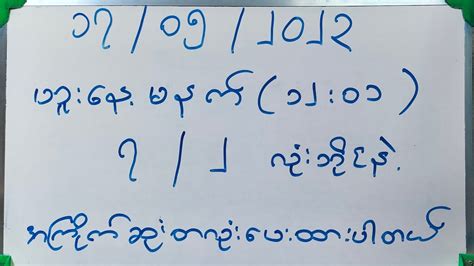 ၁၇ / ၀၅ / ၂၀၂၃
ဗဒူးနေ့ မနက် (၁၂:၀၁)
၇ / ၂ လုံးဘိုင်နဲ့
အကြိုက်ဆုံးတလုံးပေးထားပါတယ်